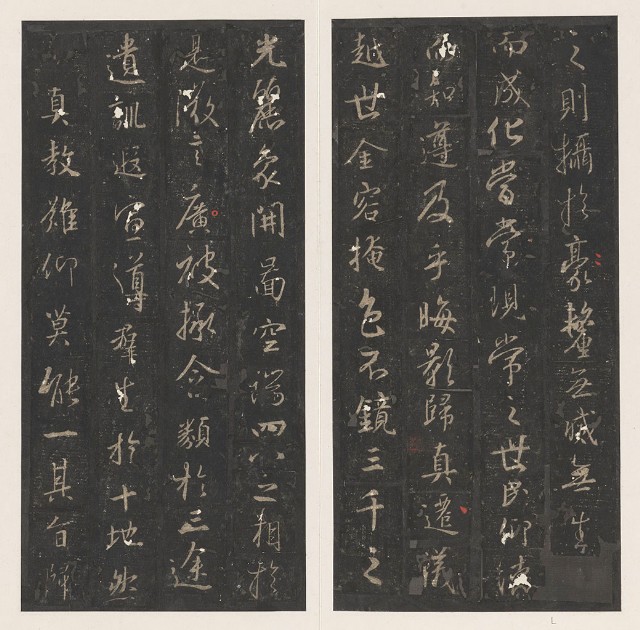 之則攝於豪釐无滅無生
而成化當常現常之世民仰德
而知遵及乎晦影歸真遷儀
越世金容掩色不鏡三千之
光麗象開啚空端四八之相於
是微言廣被拯含類於三途
遺訓遐宣導羣生於十地然
真教難仰莫能一其旨歸